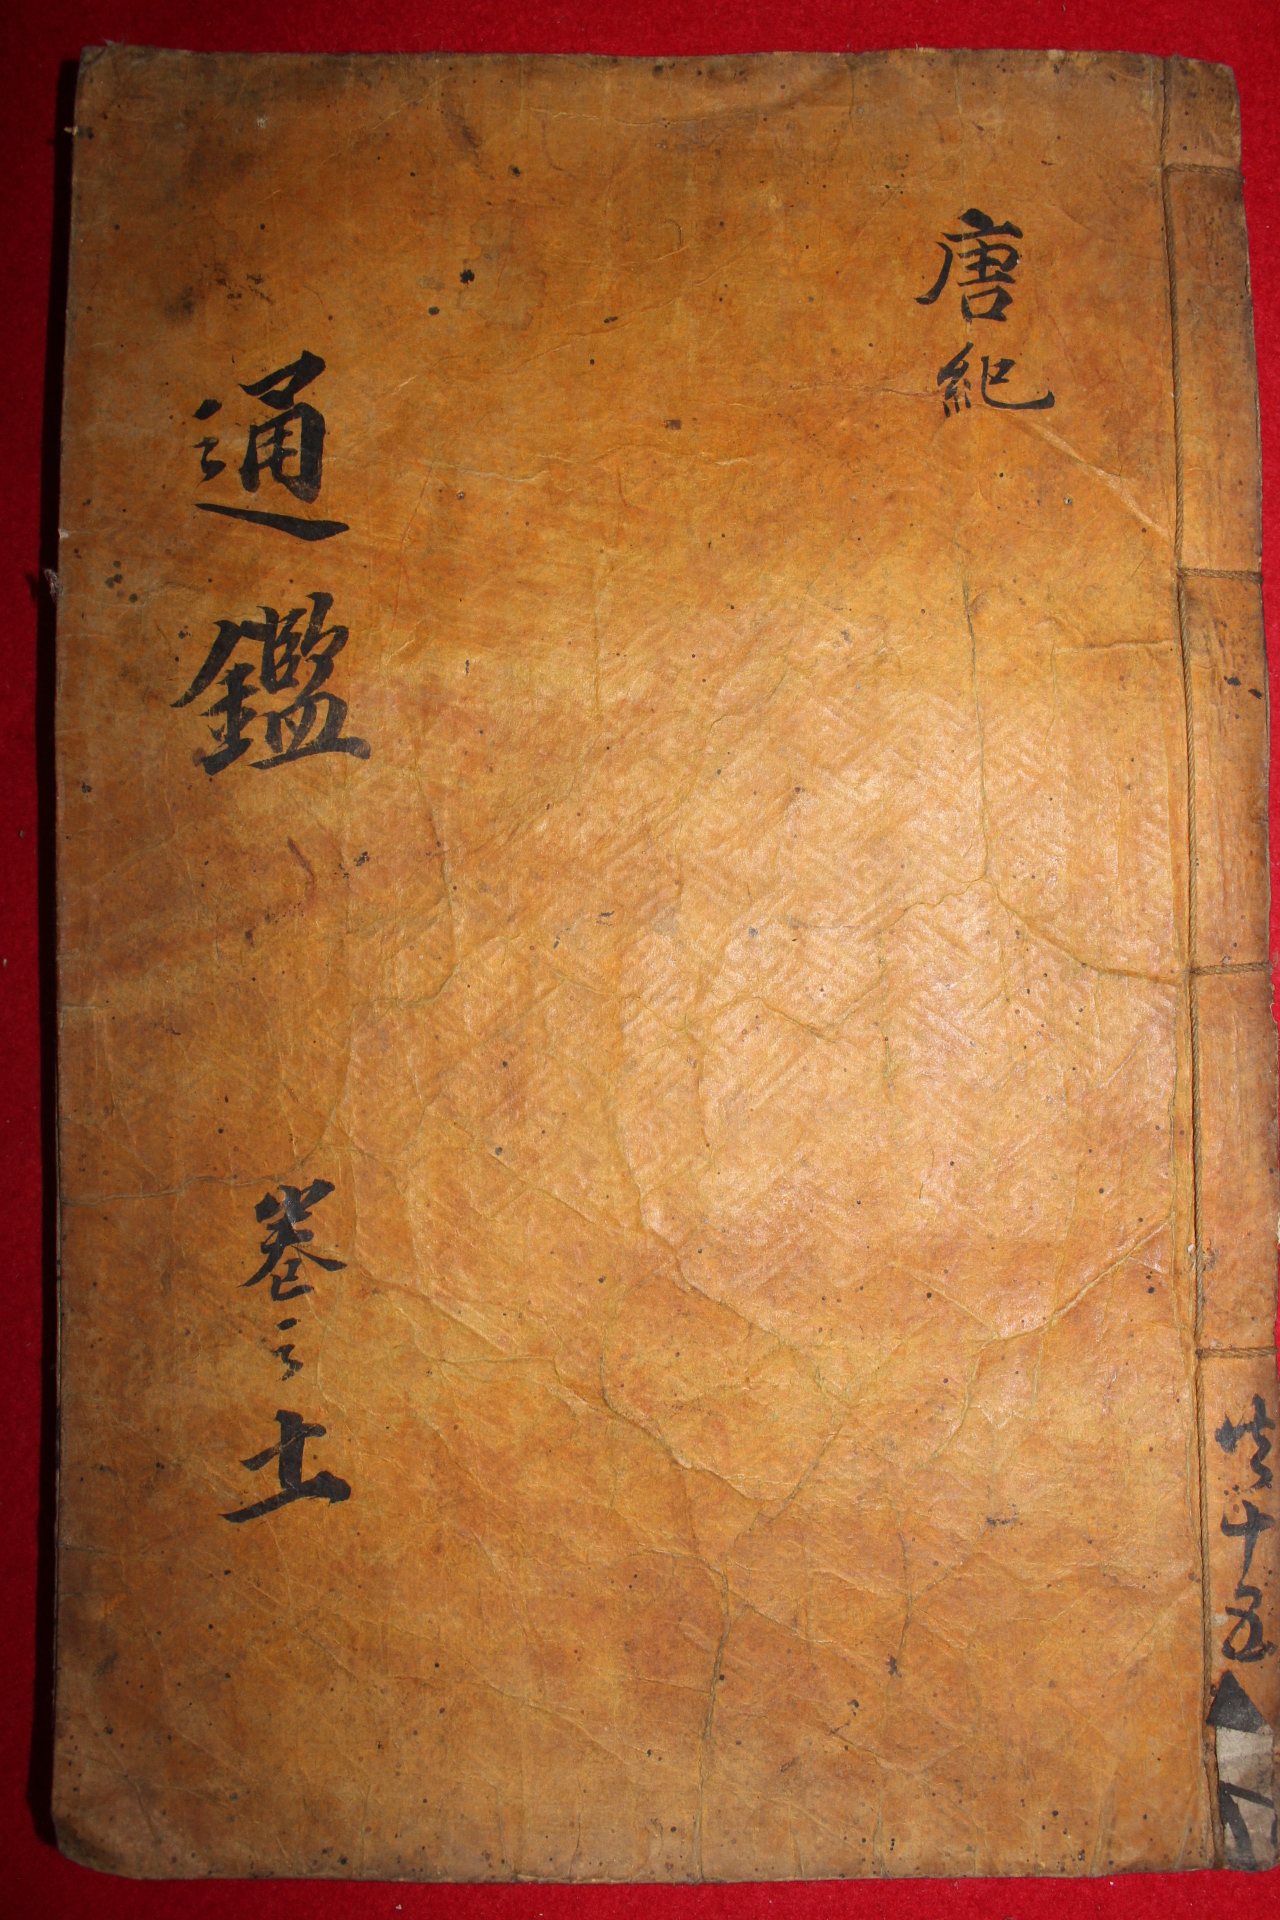 唐紀
通鑑
卷之十一
共十五